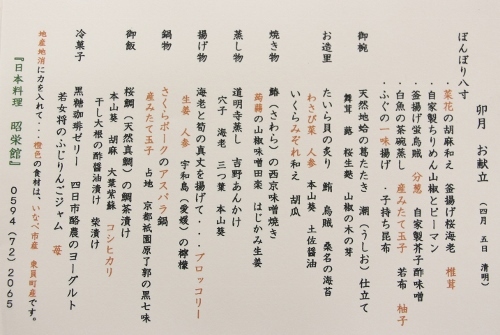 卯月　お献立　（四月　五日　清明）
ぼんぼり八寸
・菜花の胡麻和え　釜揚げ桜海老　椎茸
・自家製ちりめん山椒とピーマン
・釜揚げ蛍烏賊　分葱　自家製芥子酢味噌
・白魚の茶碗蒸し　産みたて玉子　若布　柚子
・ふぐの一味揚げ　・子持ち昆布
御椀　天然地蛤の葛たたき　潮（うしお）仕立て
舞茸　蕗　桜生麩　山椒の木の芽
お造里　たいら貝の炙り　鮪　烏賊　桑名の海苔
わさび菜　人参　本山葵　土佐醤油
いくらみぞれ和え　胡瓜
焼き物　鰆（さわら）の西京味噌焼き
蒟蒻の山椒味噌田楽　はじかみ生姜
蒸し物　道明寺蒸し　吉野あんかけ
穴子　海老　三つ葉　本山葵
揚げ物　海老と筍の真丈を揚げて・・・ブロッコリー
生姜　人参　宇和島（愛媛）の檸檬
鍋物　さくらポークのアスパラ鍋
産みたて玉子　占地　京都祇園原了郭の黒七味
御飯　桜鯛（天然真鯛）の鯛茶漬け
本山葵　胡麻　大葉紫蘇　コシヒカリ
干し大根の酢醤油漬け　柴漬け
冷菓子　黒糖珈琲ゼリー　四日市酪農のヨーグルト
若女将のふじりんごジャム　苺
地産地消に力を入れて・・・橙色の食材は、いなべ市産　東員町産です。
『日本料理　昭栄館』　０５９４（７２）２０６５